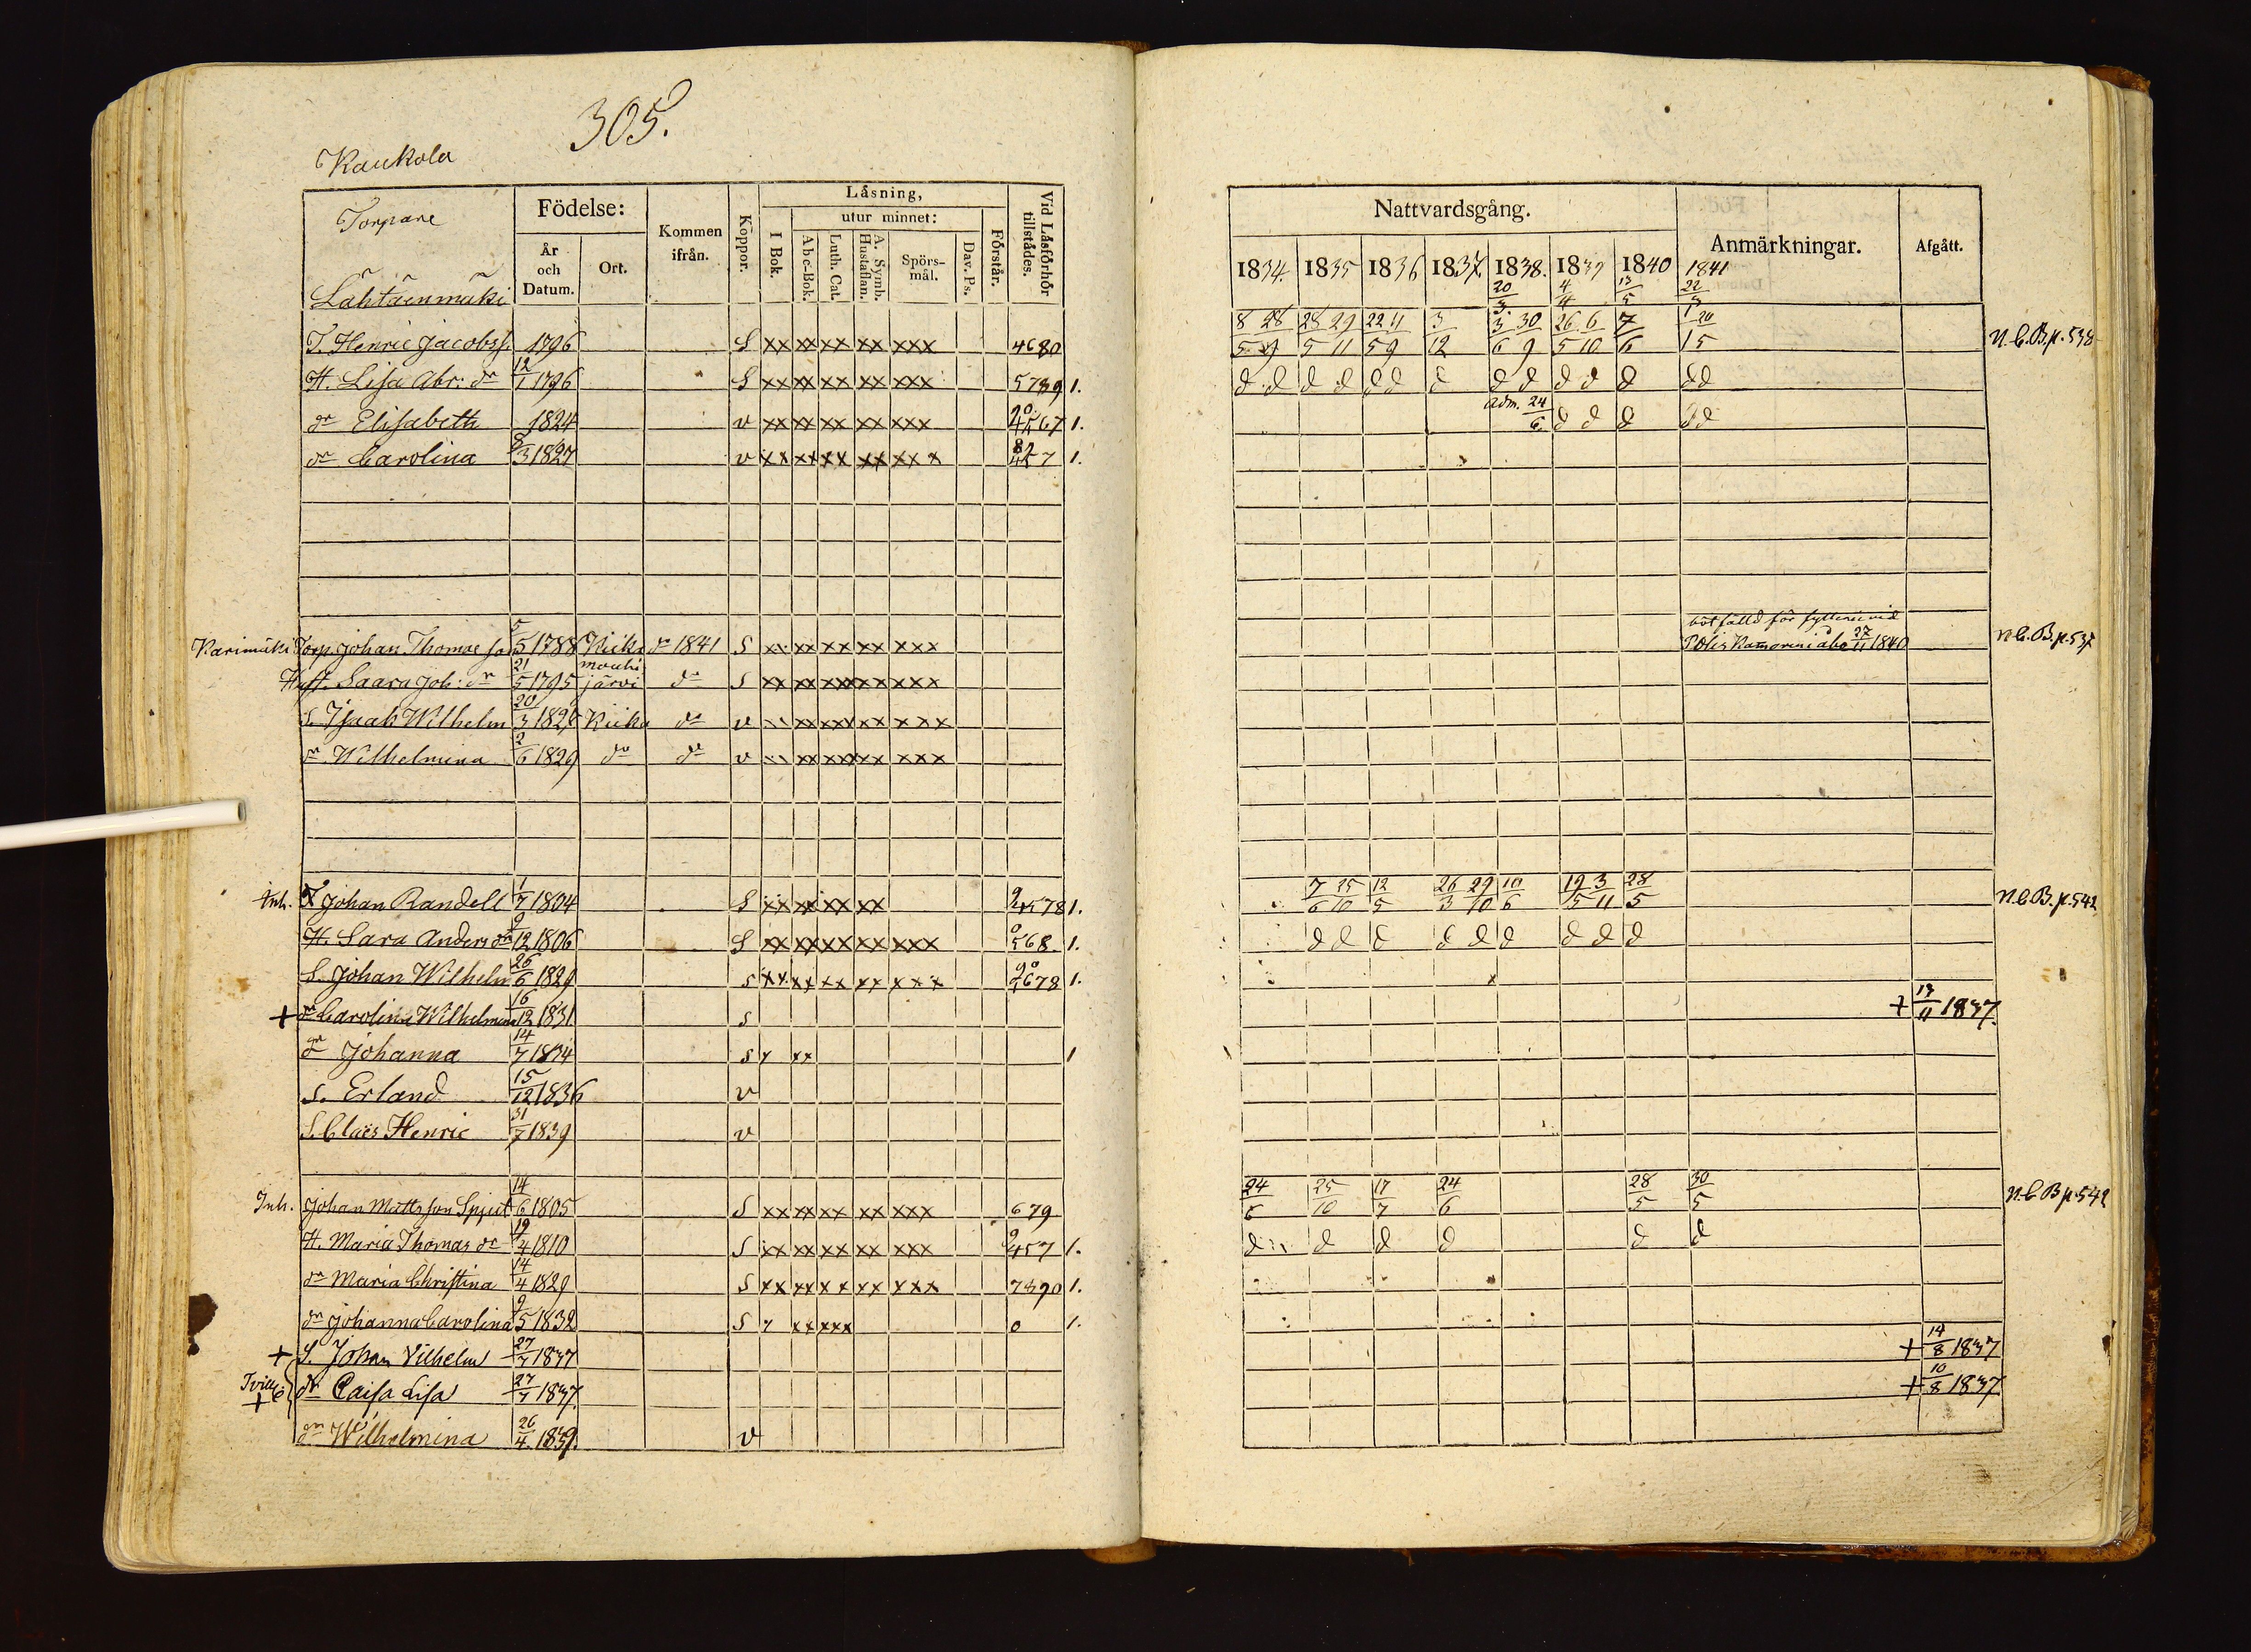 305.
Kaukola
Torpare
Lahtäenmäki
Födelse:
År och Datum.
Ort.
Kommen ifrån.
Koppor.
Läsning,
I Bok.
utur minnet:
Abc-Bok.
Luth. Cat.
A. Symb. Hustaflan.
Spörsmål.
Dav. Ps.
Förstår.
Vid Läsförhör tillstädes.
T. Henric Jacobss. 1796 S xx xx xx xx xxx 4680
H. Lisa Abr: dr 12/1 1796 S xx xx xx xx xxx 5789 1.
dr Elisabeth 1824 v xx xx xx xx xxx 4567 1.
dr Carolina 8/3 1827 v xx xx xx xx xxx 1.
Karimäki Torp. Johan Thomae son 5/5 1788 Kicko dr 1841 S xx xx xx xxx
Hust. Saara Joh: dr 21/5 1795 mouhi järvi do S xx xx xx xx xxx
S. Isaak Wilhelm 20/3 1827 Kicko do v xx xx xx xxx
dr Wilhelmina 2/6 1829 do do v xx xx xx xxx
Inh. Johan Randell 1/7 1804 S xx xx xx xx 1.
H. Sara Anders dr 9/12 1806 S xx xx xx xx xxx 568 1.
S. Johan Wilhelm 26/6 1829 s xx xx xx xx xxx 2678 1.
+ dr Carolina Wilhelmina 16/12 1831 s
dr Johanna 14/7 1834 s x xx 1
S. Erland 15/12 1836 v
S. Claës Henric 31/7 1839 v
Inh. Johan Mattsson Spjut 14/6 1805 S xx xx xx xx xxx 679
H. Maria Thomas dr 19/4 1810 S xx xx xx xx xxx 457 1.
dr Maria Christina 14/4 1829 S xx xx xx xx xxx 7890 1.
dr Johanna Carolina 9/5 1832 S x xx xxx 0 1.
+ S. Johan Vilhelm 27/7 1837
Tvill. + dr Caisa Lisa 27/7 1837.
dr Wilhelmina 26/4 1839. v
Nattvardsgång.
Anmärkningar.
Afgått.
1834. 1835 1836 1837. 1838. 1839 1840 1841
20/3 4/4 13/5 22/3
8/5 28/9 28/5 29/11 22/5 11/9 3/12 3/6 30/9 26/5 6/10 7/6 1/1 20/5 N.C.B.p.538
d d d d d d d d d d d d d d
adm. 24/6 d d d d d
bötfälld för fylleri vid
Polis Kamoren i Åbo 27/11 1840 N.C.B.p.537
7/6 25/10 12/5 26/3 29/10 10/6 19/5 3/11 28/5 N.C.B.p.542
d d d d d d d d d
+ 13/11 1837.
24/5 25/10 17/7 24/6 28/5 30/5 N.C.B p.542
d d d d d d
+ 14/8 1837
+ 10/8 1837